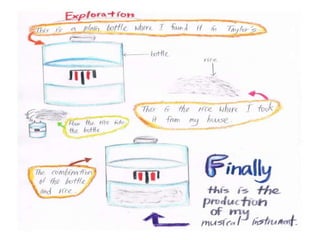 Exploration
This is a plain bottle where I found it in Taylor's
bottle
rice
Pour the rice into
the bottle
This is the rice where I took
it from my house
The combination
of the bottle
and rice.
Finally
this is the
production
of my
musical instrument.